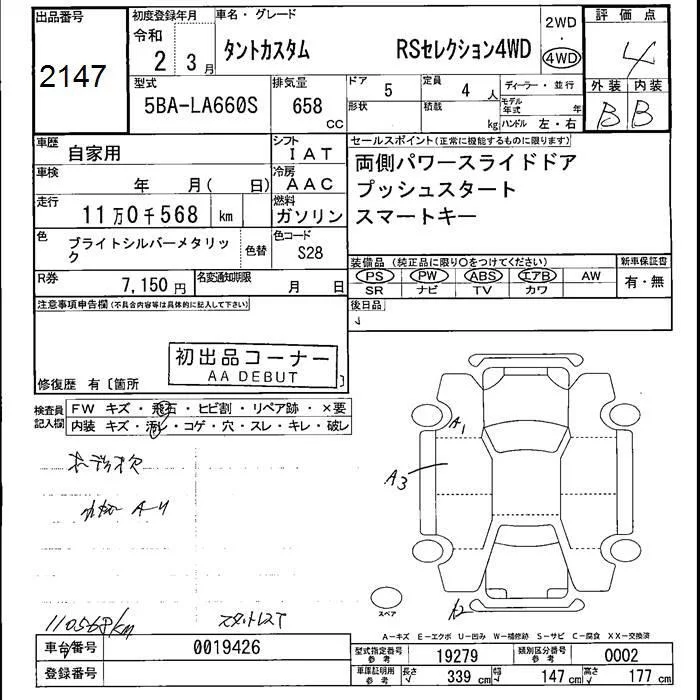 出品番号 初度登録年月 車名・グレード 2WD 評価点
2147 令和 2 3月 タントカスタム RSセレクション4WD ・ 4WD 4
型式 排気量 ドア 5 定員 4人 ディーラー・並行 外装 内装
5BA-LA660S 658 CC 形状 積載 kg モデル年式 年 B B
ハンドル 左・右
車歴 自家用 シフト IAT セールスポイント(正常に機能するものに限ります)
車検 年 月( 日) 冷房 AAC 両側パワースライドドア
走行 11万0千568 km 燃料 ガソリン プッシュスタート
スマートキー
色 ブライトシルバーメタリック 色替 色コード S28
装備品 (純正品に限り○をつけてください) 新車保証書
R券 7,150円 名変通知期限 月 日 PS PW ABS エアB AW 有・無
SR ナビ TV カワ
注意事項申告欄(不具合内容等は具体的に記入して下さい) 後日品
初出品コーナー
AA DEBUT
修復歴 有〔箇所 〕
検査員記入欄 FW キズ・飛石・ヒビ割・リペア跡・×要
内装 キズ・汚レ・コゲ・穴・スレ・キレ・破レ
A1
A3
A-U
スペア
A2
110568km
A-キズ E-エクボ U-凹み W-補修跡 S-サビ C-腐食 XX-交換済
車台番号 0019426 型式指定番号 参考 19279 類別区分番号 参考 0002
登録番号 車庫証明用 参考 長さ 339cm 幅 147cm 高さ 177cm